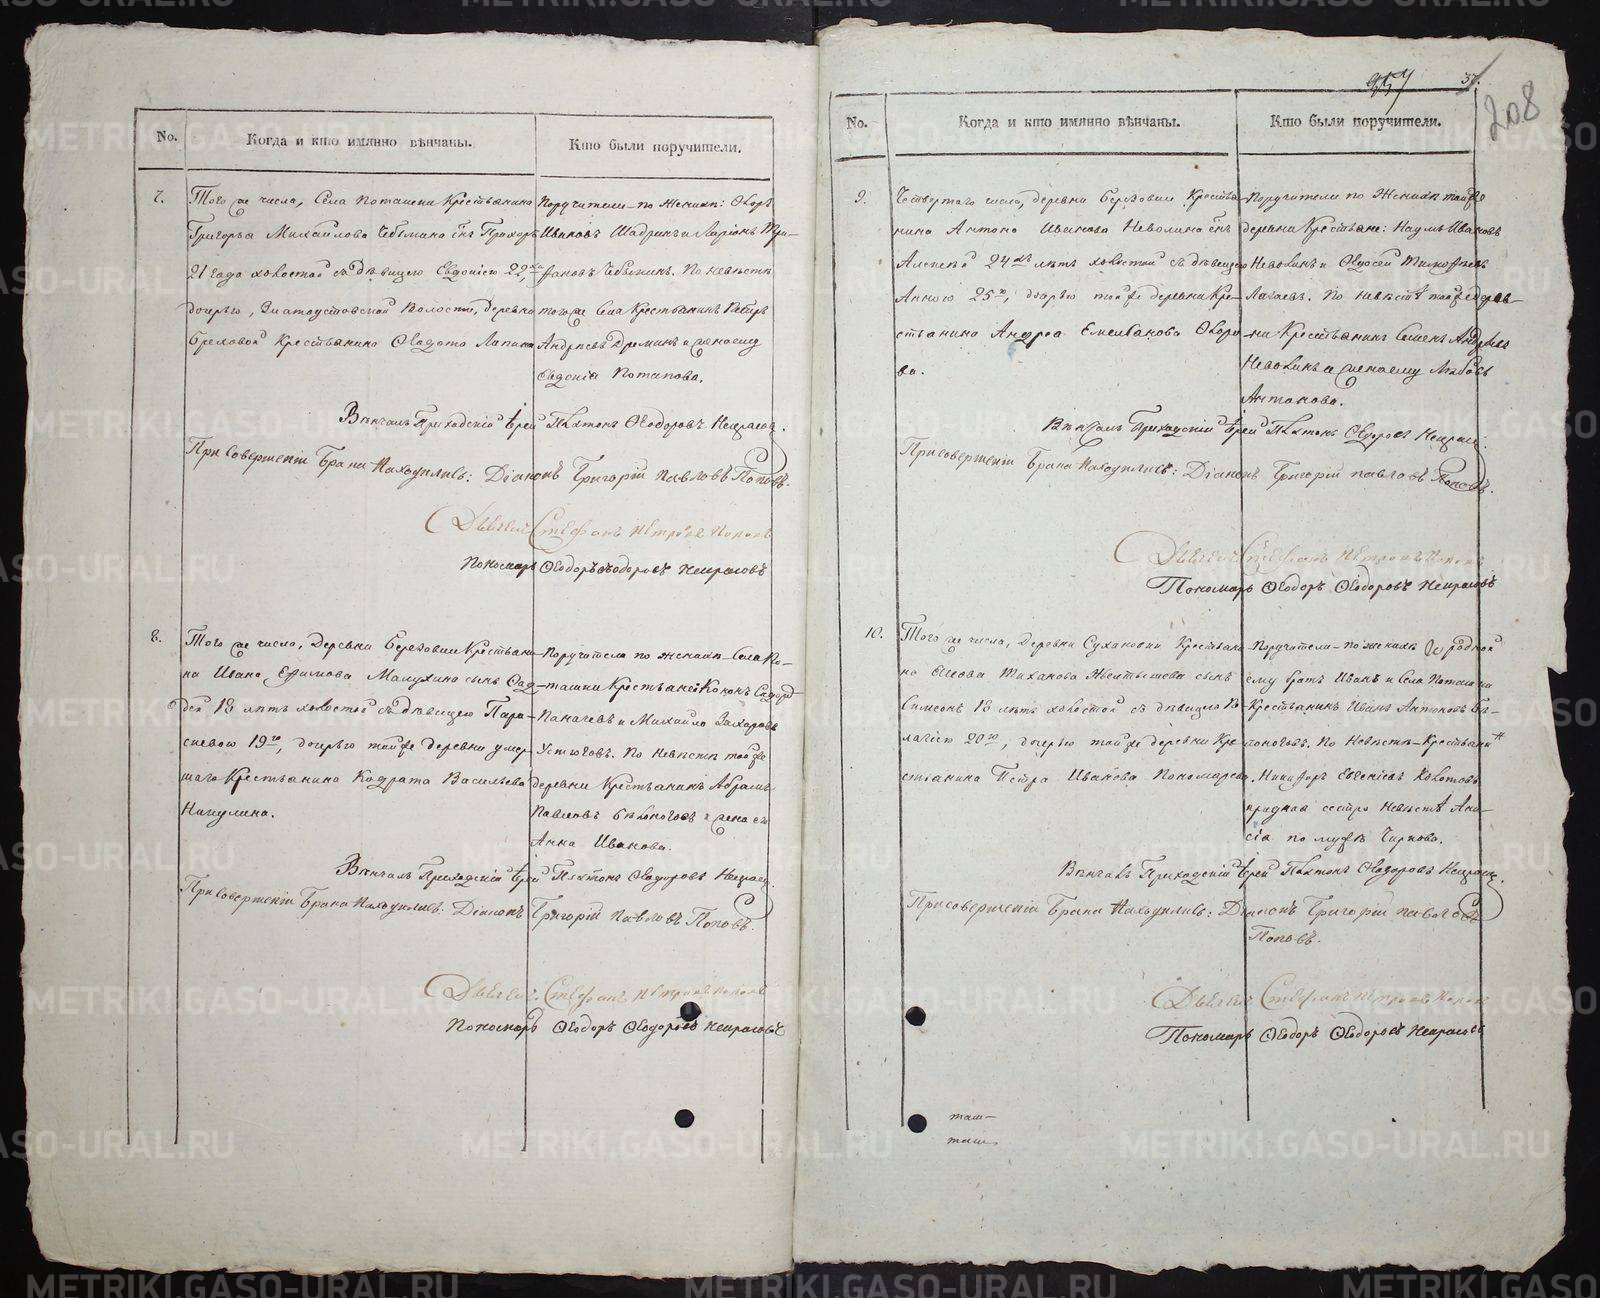 No.
Когда и кто имянно вѣнчаны.
Кто были поручители.
7.
Того же числа, Села Поташки Крестьянина
Григорья Михайлова сынъ Прохоръ
21 года холостой съ дѣвицею Евдокіею 22,
дочерью, Златоустовской Волости, деревни
Крестьянина Ѳедота Лапина
Поручители по женихѣ: Ѳедоръ
Ивановъ Шадринъ и Ларіонъ Три-
фановъ. По невѣстѣ
того же Села Крестьянинъ Петръ
Андреевъ и жена его
Евдокія Потапова.
Вѣнчалъ Приходскій Іерей Платонъ Ѳеодоровъ Некрасовъ.
При совершеніи Брака находились: Діаконъ Григорій Павловъ Поповъ.
Дьячекъ Стефанъ Петровъ Поповъ
Пономарь Ѳеодоръ Ѳеодоровъ Некрасовъ
8.
Того же числа, Деревни Березовки Крестьяни-
на Ивана Ефимова Малухина сынъ Ѳад-
дей 18 лѣтъ холостой съ дѣвицею Пара-
скевою 19, дочерью той же деревни умер-
шаго Крестьянина Кодрата Васильева
Никулина.
Поручители по женихѣ Села По-
ташки Крестьяне Кононъ Сидоровъ
и Михайло Захаровъ
Устюговъ. По Невѣстѣ той же
деревни Крестьянинъ Абрамъ
Павловъ Бѣлоноговъ и жена его
Анна Иванова.
Вѣнчалъ Приходскій Іерей Платонъ Ѳеодоровъ Некрасовъ.
При совершеніи Брака находились: Діаконъ Григорій Павловъ Поповъ.
Дьячекъ Стефанъ Петровъ Поповъ
Пономарь Ѳеодоръ Ѳеодоровъ Некрасовъ
357
37.
208
No.
Когда и кто имянно вѣнчаны.
Кто были поручители.
9.
Четвертаго числа, деревни Березовки Крестья-
нина Антона Иванова Неволина сынъ
Алексѣй 24 лѣтъ холостой съ дѣвицею
Анною 25, дочерью той же деревни Кре-
стьянина Андрея Емельянова
Поручители по Женихѣ той же
деревни Крестьяне: Наумъ Ивановъ
Неволинъ и Ѳедосей Тимофѣевъ
По невѣстѣ той же дерев-
ни Крестьянинъ Семенъ Андреевъ
Неволинъ и жена ему Любовь
Антонова.
Вѣнчалъ Приходскій Іерей Платонъ Ѳеодоровъ Некрасовъ.
При совершеніи Брака находились: Діаконъ Григорій Павловъ Поповъ.
Дьячекъ Стефанъ Петровъ Поповъ
Пономарь Ѳеодоръ Ѳеодоровъ Некрасовъ
10.
Того же числа, Деревни Сухановки Крестьяни-
на сынъ
Симеонъ 18 лѣтъ холостой съ дѣвицею Пе-
лагіею 20, дочерью той же деревни Кре-
стьянина Петра Иванова Пономарева.
Поручители по женихѣ родной
ему братъ Иванъ и Села Поташки
Крестьянинъ Иванъ Антоновъ Бѣ-
лоноговъ. По Невѣстѣ Крестьянинъ
Никифоръ
и родная сестра Невѣстѣ Ани-
сія по мужѣ Чиркова.
Вѣнчалъ Приходскій Іерей Платонъ Ѳеодоровъ Некрасовъ.
При совершеніи Брака находились: Діаконъ Григорій Павловъ
Поповъ.
Дьячекъ Стефанъ Петровъ Поповъ
Пономарь Ѳеодоръ Ѳеодоровъ Некрасовъ
METRIKI.GASO-URAL.RU